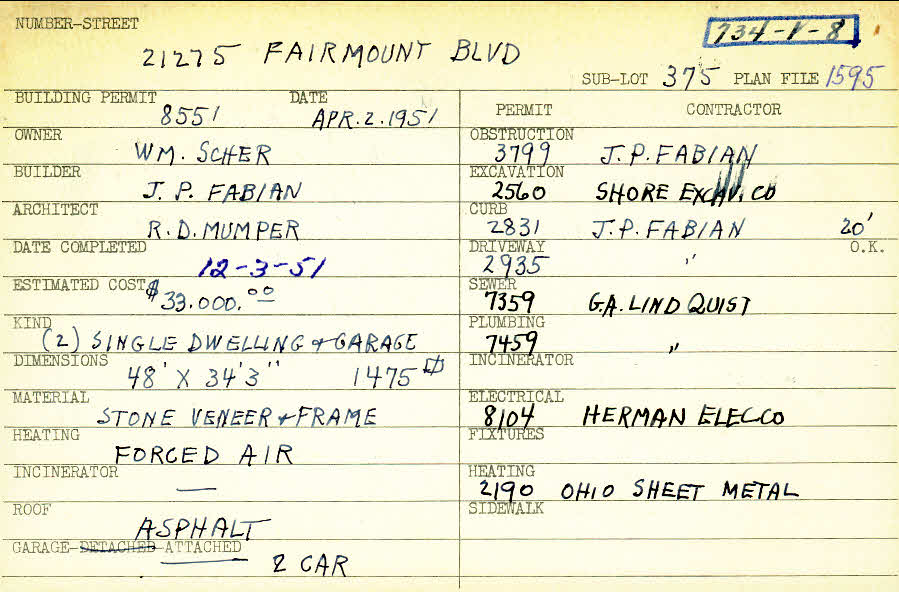 NUMBER-STREET
734-V-8
21275 FAIRMOUNT BLVD
SUB-LOT 375 PLAN FILE 1595
BUILDING PERMIT DATE
8551 APR. 2. 1951
OWNER
WM. SCHER
BUILDER
J. P. FABIAN
ARCHITECT
R. D. MUMPER
DATE COMPLETED
12-3-51
ESTIMATED COST $33.000.00
KIND
(2) SINGLE DWELLING & GARAGE
DIMENSIONS
48' X 34'3" 1475
MATERIAL
STONE VENEER & FRAME
HEATING
FORCED AIR
INCINERATOR
—
ROOF
ASPHALT
GARAGE-DETACHED-ATTACHED
2 CAR
PERMIT CONTRACTOR
OBSTRUCTION
3799 J. P. FABIAN
EXCAVATION
2560 SHORE EXCAV. CO
CURB
2831 J. P. FABIAN 20'
DRIVEWAY O.K.
2935 "
SEWER
7359 G.A. LINDQUIST
PLUMBING
7459 "
INCINERATOR
ELECTRICAL
8104 HERMAN ELEC CO
FIXTURES
HEATING
2190 OHIO SHEET METAL
SIDEWALK